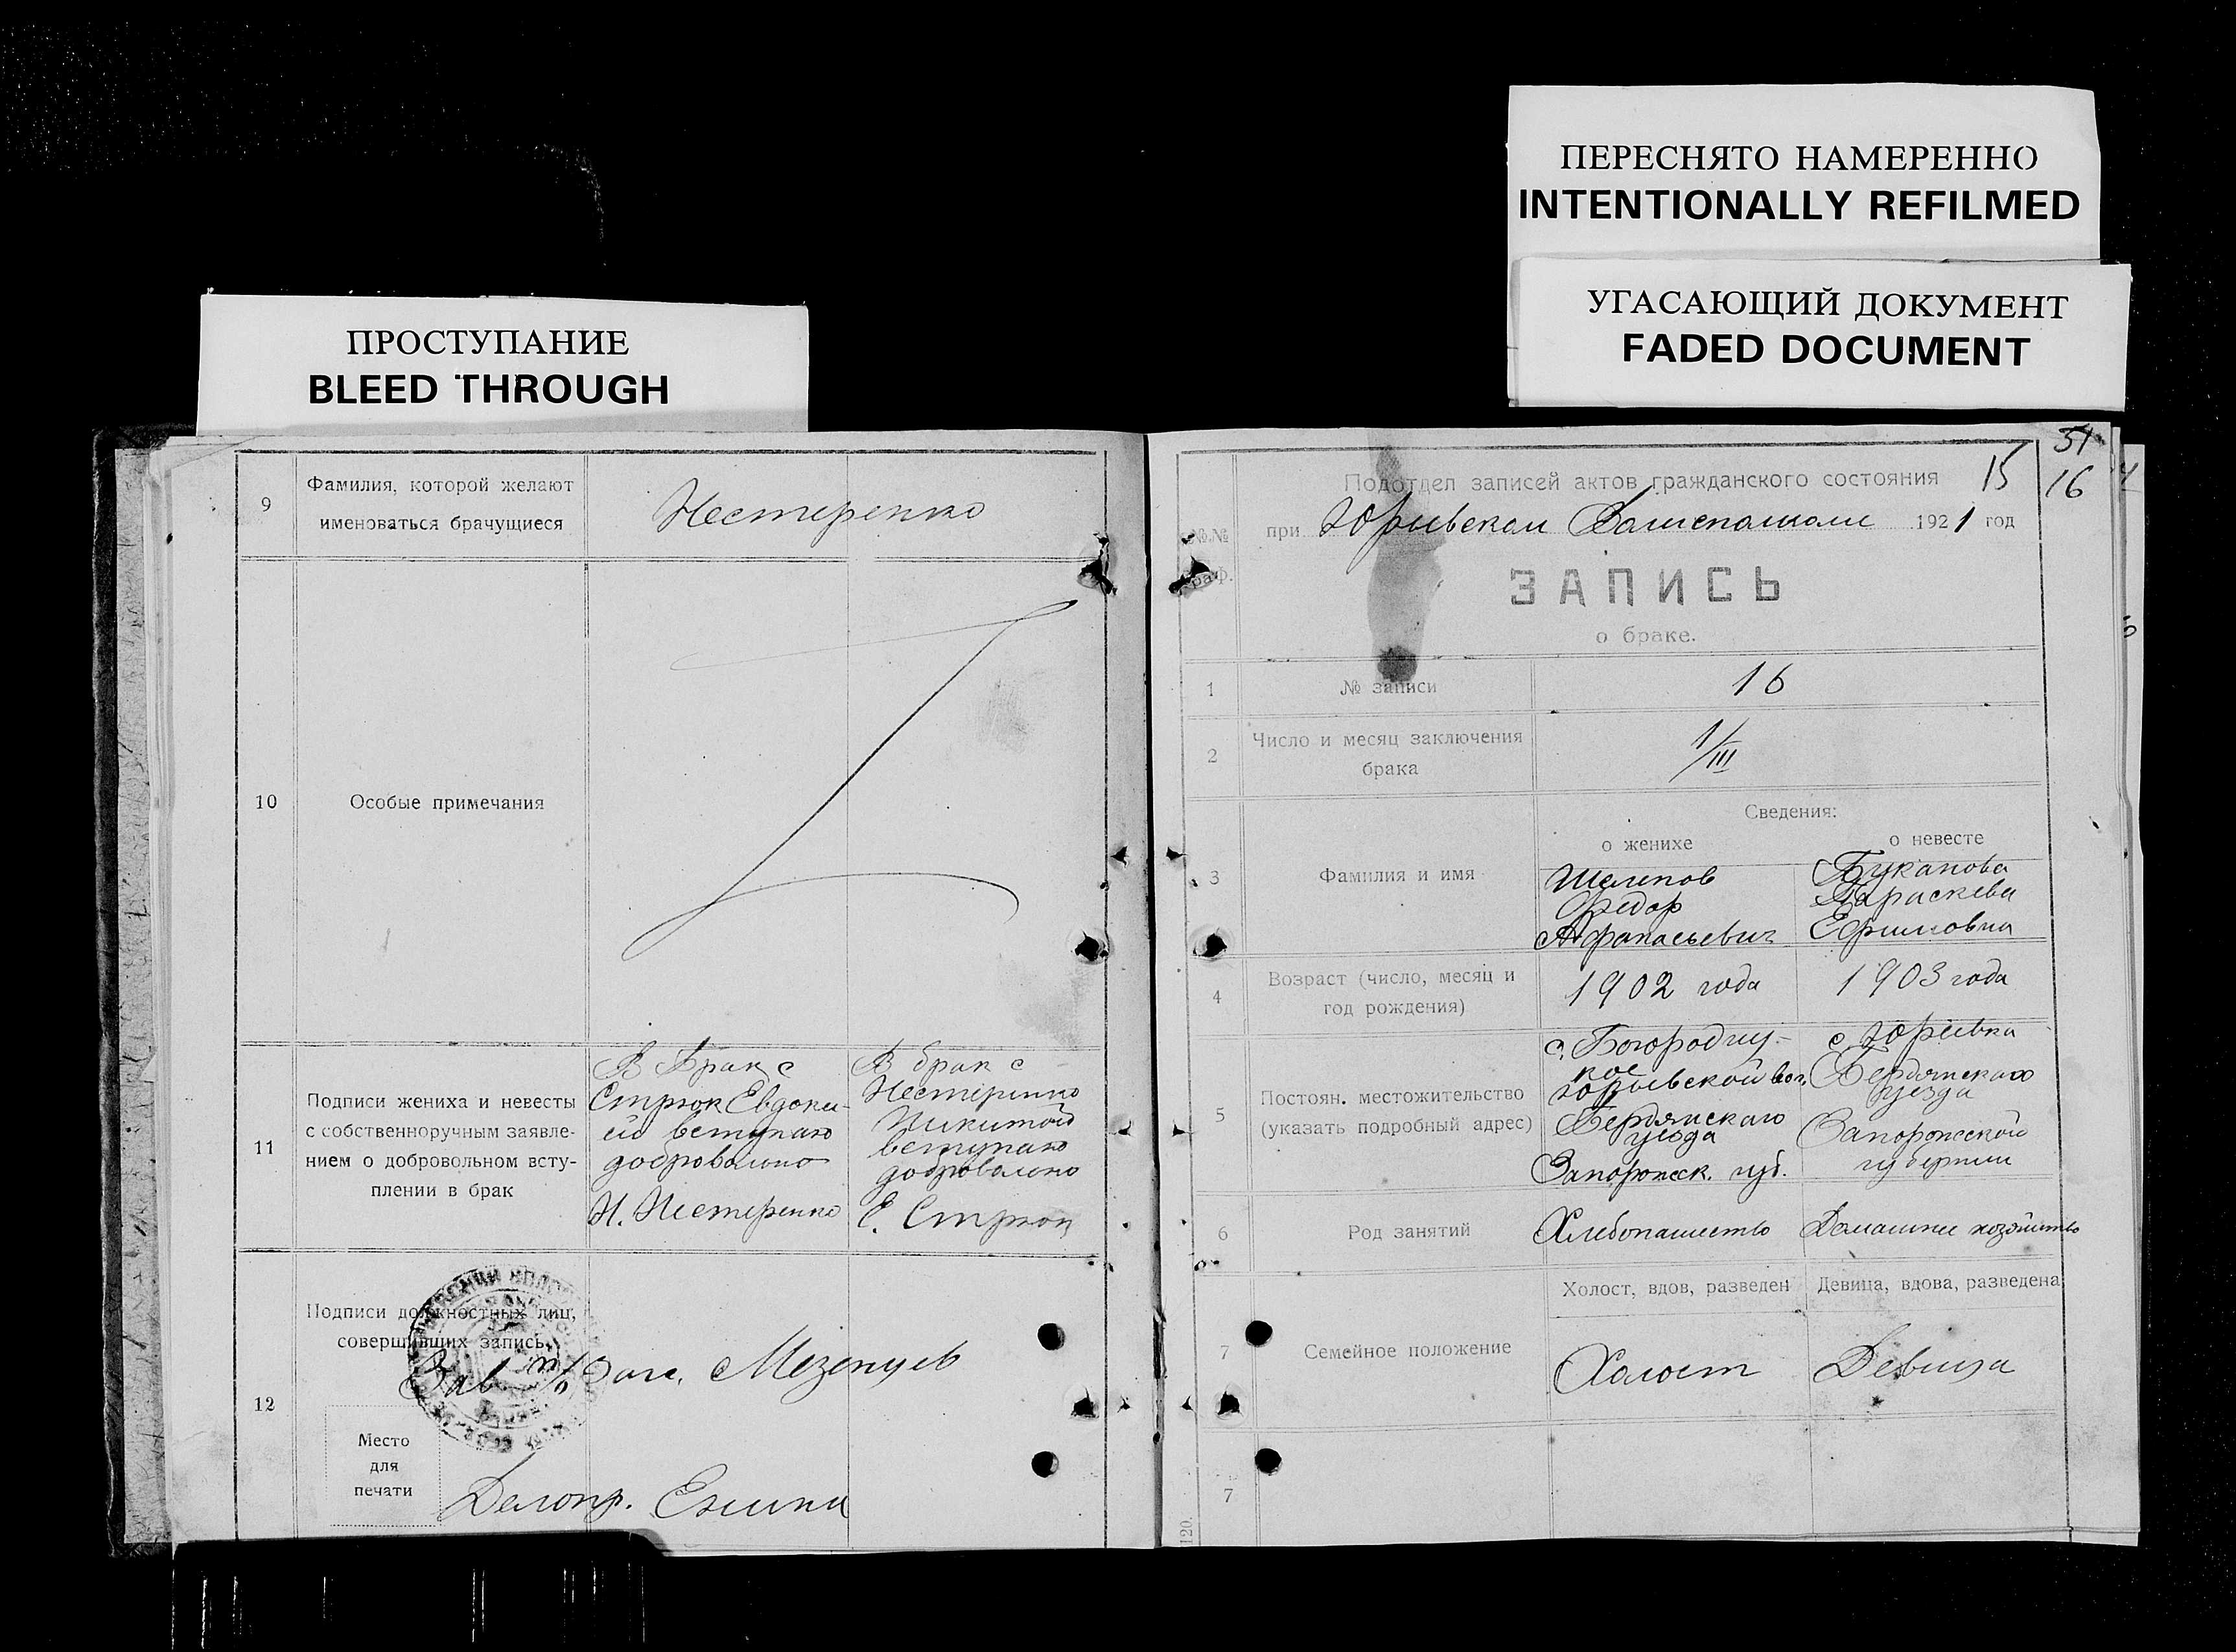 ПЕРЕСНЯТО НАМЕРЕННО
INTENTIONALLY REFILMED
УГАСАЮЩИЙ ДОКУМЕНТ
FADED DOCUMENT
ПРОСТУПАНИЕ
BLEED THROUGH
9
Фамилия, которой желают
именоваться брачущиеся
Нестеренко
10
Особые примечания
11
Подписи жениха и невесты
с собственноручным заявле-
нием о добровольном всту-
плении в брак
В Брак с
Стрюк Евдоки-
ей вступаю
добровольно
Н. Нестеренко
В брак с
Нестеренко
Никитой
вступаю
добровольно
Е. Стрюк
12
Подписи должностных лиц,
совершивших запись.
Зав. п/о Загс. Мезенцев
Место
для
печати
Делопр.
51
15
16
Подотдел записей актов гражданского состояния
№№
граф.
при Юрьевском 1921 год
ЗАПИСЬ
о браке.
1
№ записи
16
2
Число и месяц заключения
брака
1/III
Сведения:
о женихе
о невесте
3
Фамилия и имя
Шелепов
Федор
Афанасьевич
Буканова
Параскева
Ефимовна
4
Возраст (число, месяц и
год рождения)
1902 года
1903 года
5
Постоян. местожительство
(указать подробный адрес)
с. Богородиц-
кое
Юрьевской вол.
Бердянскаго
уезда
Запорожск. губ.
с Юрьевка
Бердянскаго
уезда
Запорожской
губернии
6
Род занятий
Хлебопашество
Домашнее хозяйство
7
Семейное положение
Холост, вдов, разведен
Девица, вдова, разведена
Холост
Девица
7
120.